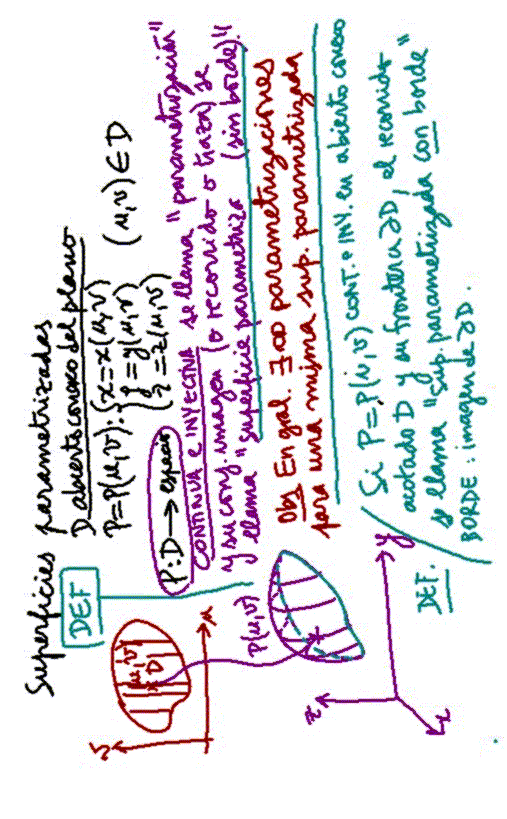 Superficies parametrizadas
DEF
D abierto conexo del plano
P=P(u,v): { x=x(u,v)
y=y(u,v)
z=z(u,v)
(u,v) ∈ D
P: D → espacio
CONTINUA e INYECTIVA se llama "parametrización"
y su conj. imagen (o recorrido o traza) se
llama "superficie parametriza (sin borde)."
Obs En gral. ∃ ∞ parametrizaciones
para una misma sup. parametrizada
DEF.
Si P=P(u,v) CONT. e INY. en abierto conexo
acotado D y su frontera ∂D, el recorrido
se llama "sup. parametrizada con borde"
BORDE: imagen de ∂D.
v
(u,v)
D
u
P(u,v)
z
y
x